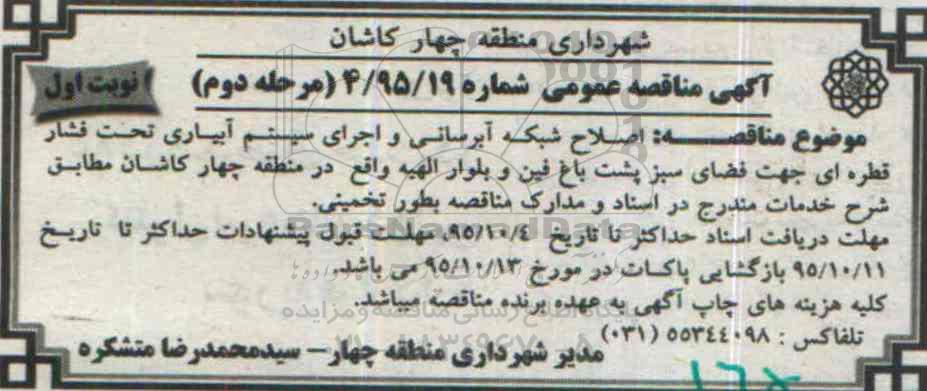 شهرداری منطقه چهار کاشان
آگهی مناقصه عمومی شماره ۴/۹۵/۱۹ (مرحله دوم)
نوبت اول
موضوع مناقصه: اصلاح شبکه آبرسانی و اجرای سیستم آبیاری تحت فشار
قطره ای جهت فضای سبز پشت باغ فین و بلوار الهیه واقع در منطقه چهار کاشان مطابق
شرح خدمات مندرج در اسناد و مدارک مناقصه بطور تخمینی.
مهلت دریافت اسناد حداکثر تا تاریخ ۹۵/۱۰/٤، مهلت قبول پیشنهادات حداکثر تا تاریخ
۹۵/۱۰/۱۱ بازگشایی پاکات در مورخ ۹۵/۱۰/۱۳ می باشد.
کلیه هزینه های چاپ آگهی به عهده برنده مناقصه میباشد.
تلفاکس : ۵۵۳٤٤۰۹۸ (۰۳۱)
مدیر شهرداری منطقه چهار – سیدمحمدرضا متشکره
ParsNamadData
پایگاه اطلاع رسانی مناقصه و مزایده